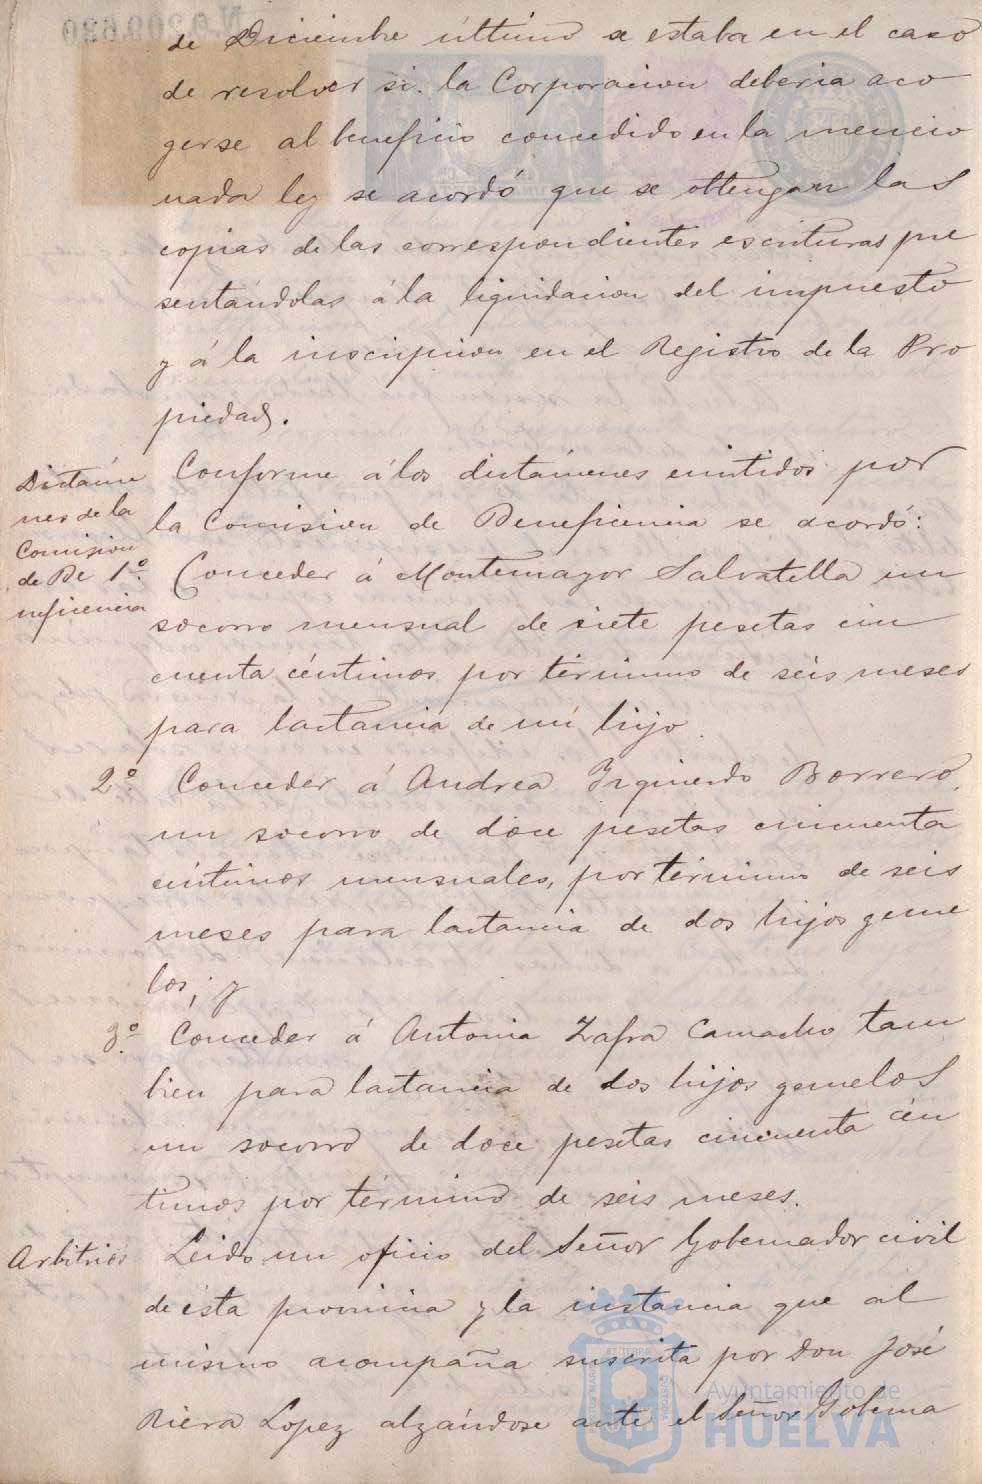 de Diciembre último se estaba en el caso
de resolver si la Corporacion deberia aco
gerse al beneficio concedido en la mencio
nada ley se acordó que se obtengan las
copias de las correspondientes escrituras pre
sentándolas á la liquidacion del impuesto
y á la inscripcion en el Registro de la Pro
piedad.
Dictáme
nes de la
Comision
de Be
neficencia
Conforme á los dictámenes emitidos por
la Comision de Beneficencia se acordó:
1º. Conceder á Montemayor Salvatella un
socorro mensual de siete pesetas cin
cuenta céntimos por término de seis meses
para lactancia de un hijo.
2º. Conceder á Andrea Izquierdo Borrero,
un socorro de doce pesetas cincuenta
céntimos mensuales, por término de seis
meses para lactancia de dos hijos geme
los; y
3º. Conceder á Antonia Zafra Camacho tam
bien para lactancia de dos hijos gemelos
un socorro de doce pesetas cincuenta cén
timos por término de seis meses.
Arbitrios
Leido un oficio del Señor Gobernador civil
de ésta provincia y la instancia que al
mismo acompaña suscrita por Don José
Riera Lopez alzándose ante el Señor Goberna
Ayuntamiento de
HUELVA
N.0,209,620